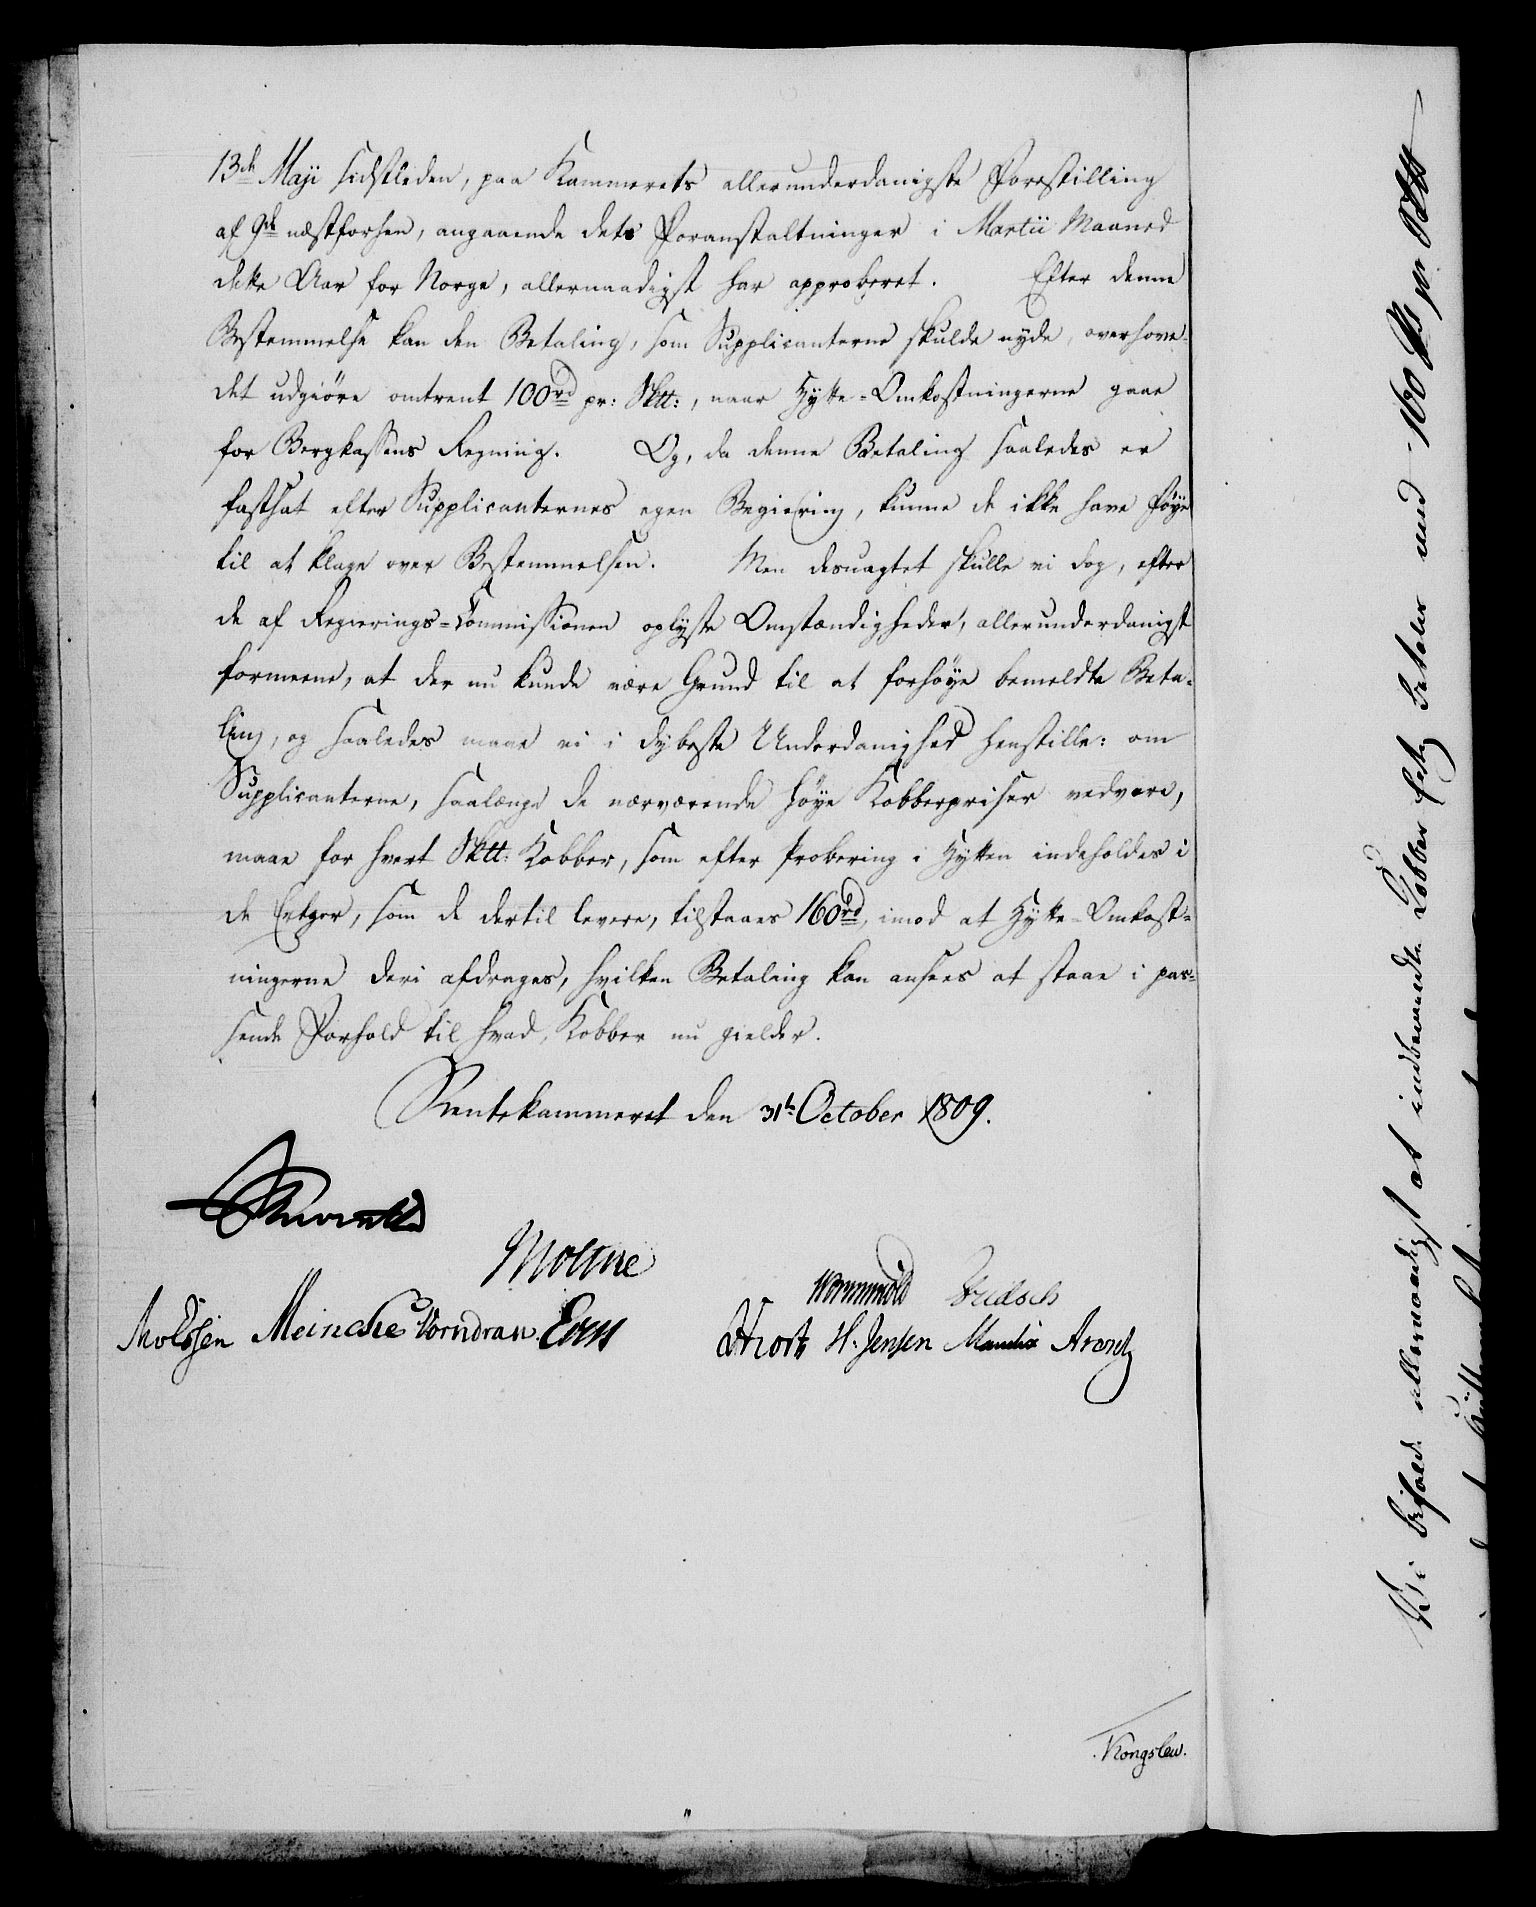 13de Maji sidstleden, paa Kammerets allerunderdanigste Forestilling
af 9de næstforhen, angaaende dets Foranstaltninger i Martii Maaned
dette Aar for Norge, allernaadigst har approberet. Efter denne
Bestemmelse kan den Betaling, som Supplicanterne skulde nyde, overhove-
det udgiöre omtrent 100rd pr: Sktt:, naar Hytte-Omkostningerne gaae
for Bergkassens Regning. Og, da denne Betaling saaledes er
fastsat efter Supplicanternes egen Begiering, kunne de ikke have Föye
til at klage over Bestemmelsen. Men desuagtet skulle vi dog, efter
de af Regierings-Commissionen oplyste Omstændigheder, allerunderdanigst
formeene, at der nu kunde være Grund til at forhöye bemeldte Beta-
ling, og saaledes maae vi i dybeste Underdanighed henstille: om
Supplicanterne, saalænge de nærværende höye Kobberpriser vedvare,
maae for hvert Sktt: Kobber, som efter Probering i Hytten indeholdes i
de Ertzer, som de dertil levere, tilstaaes 160rd, imod at Hytte-Omkost-
ningerne deri afdrages, hvilken Betaling kan ansees at staae i pas-
sende Forhold til hvad Kobber nu gielder.
Rentekammeret den 31te October 1809.
Moltke
Wormskiold
Meincke Vorndran
Hiort H. Jensen Mandix Arentz
Kongslew.
Vi bifalde allernaadigst at indbemeldte Kobber Ertz betales med 160 pr Sktt